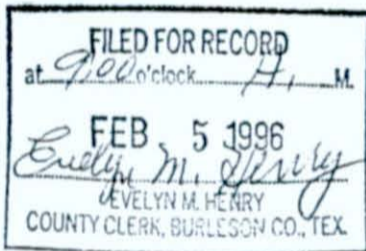 FILED FOR RECORD
at 9:00 o'clock A. M.
FEB 5 1996
Evelyn M. Henry
EVELYN M. HENRY
COUNTY CLERK, BURLESON CO., TEX.